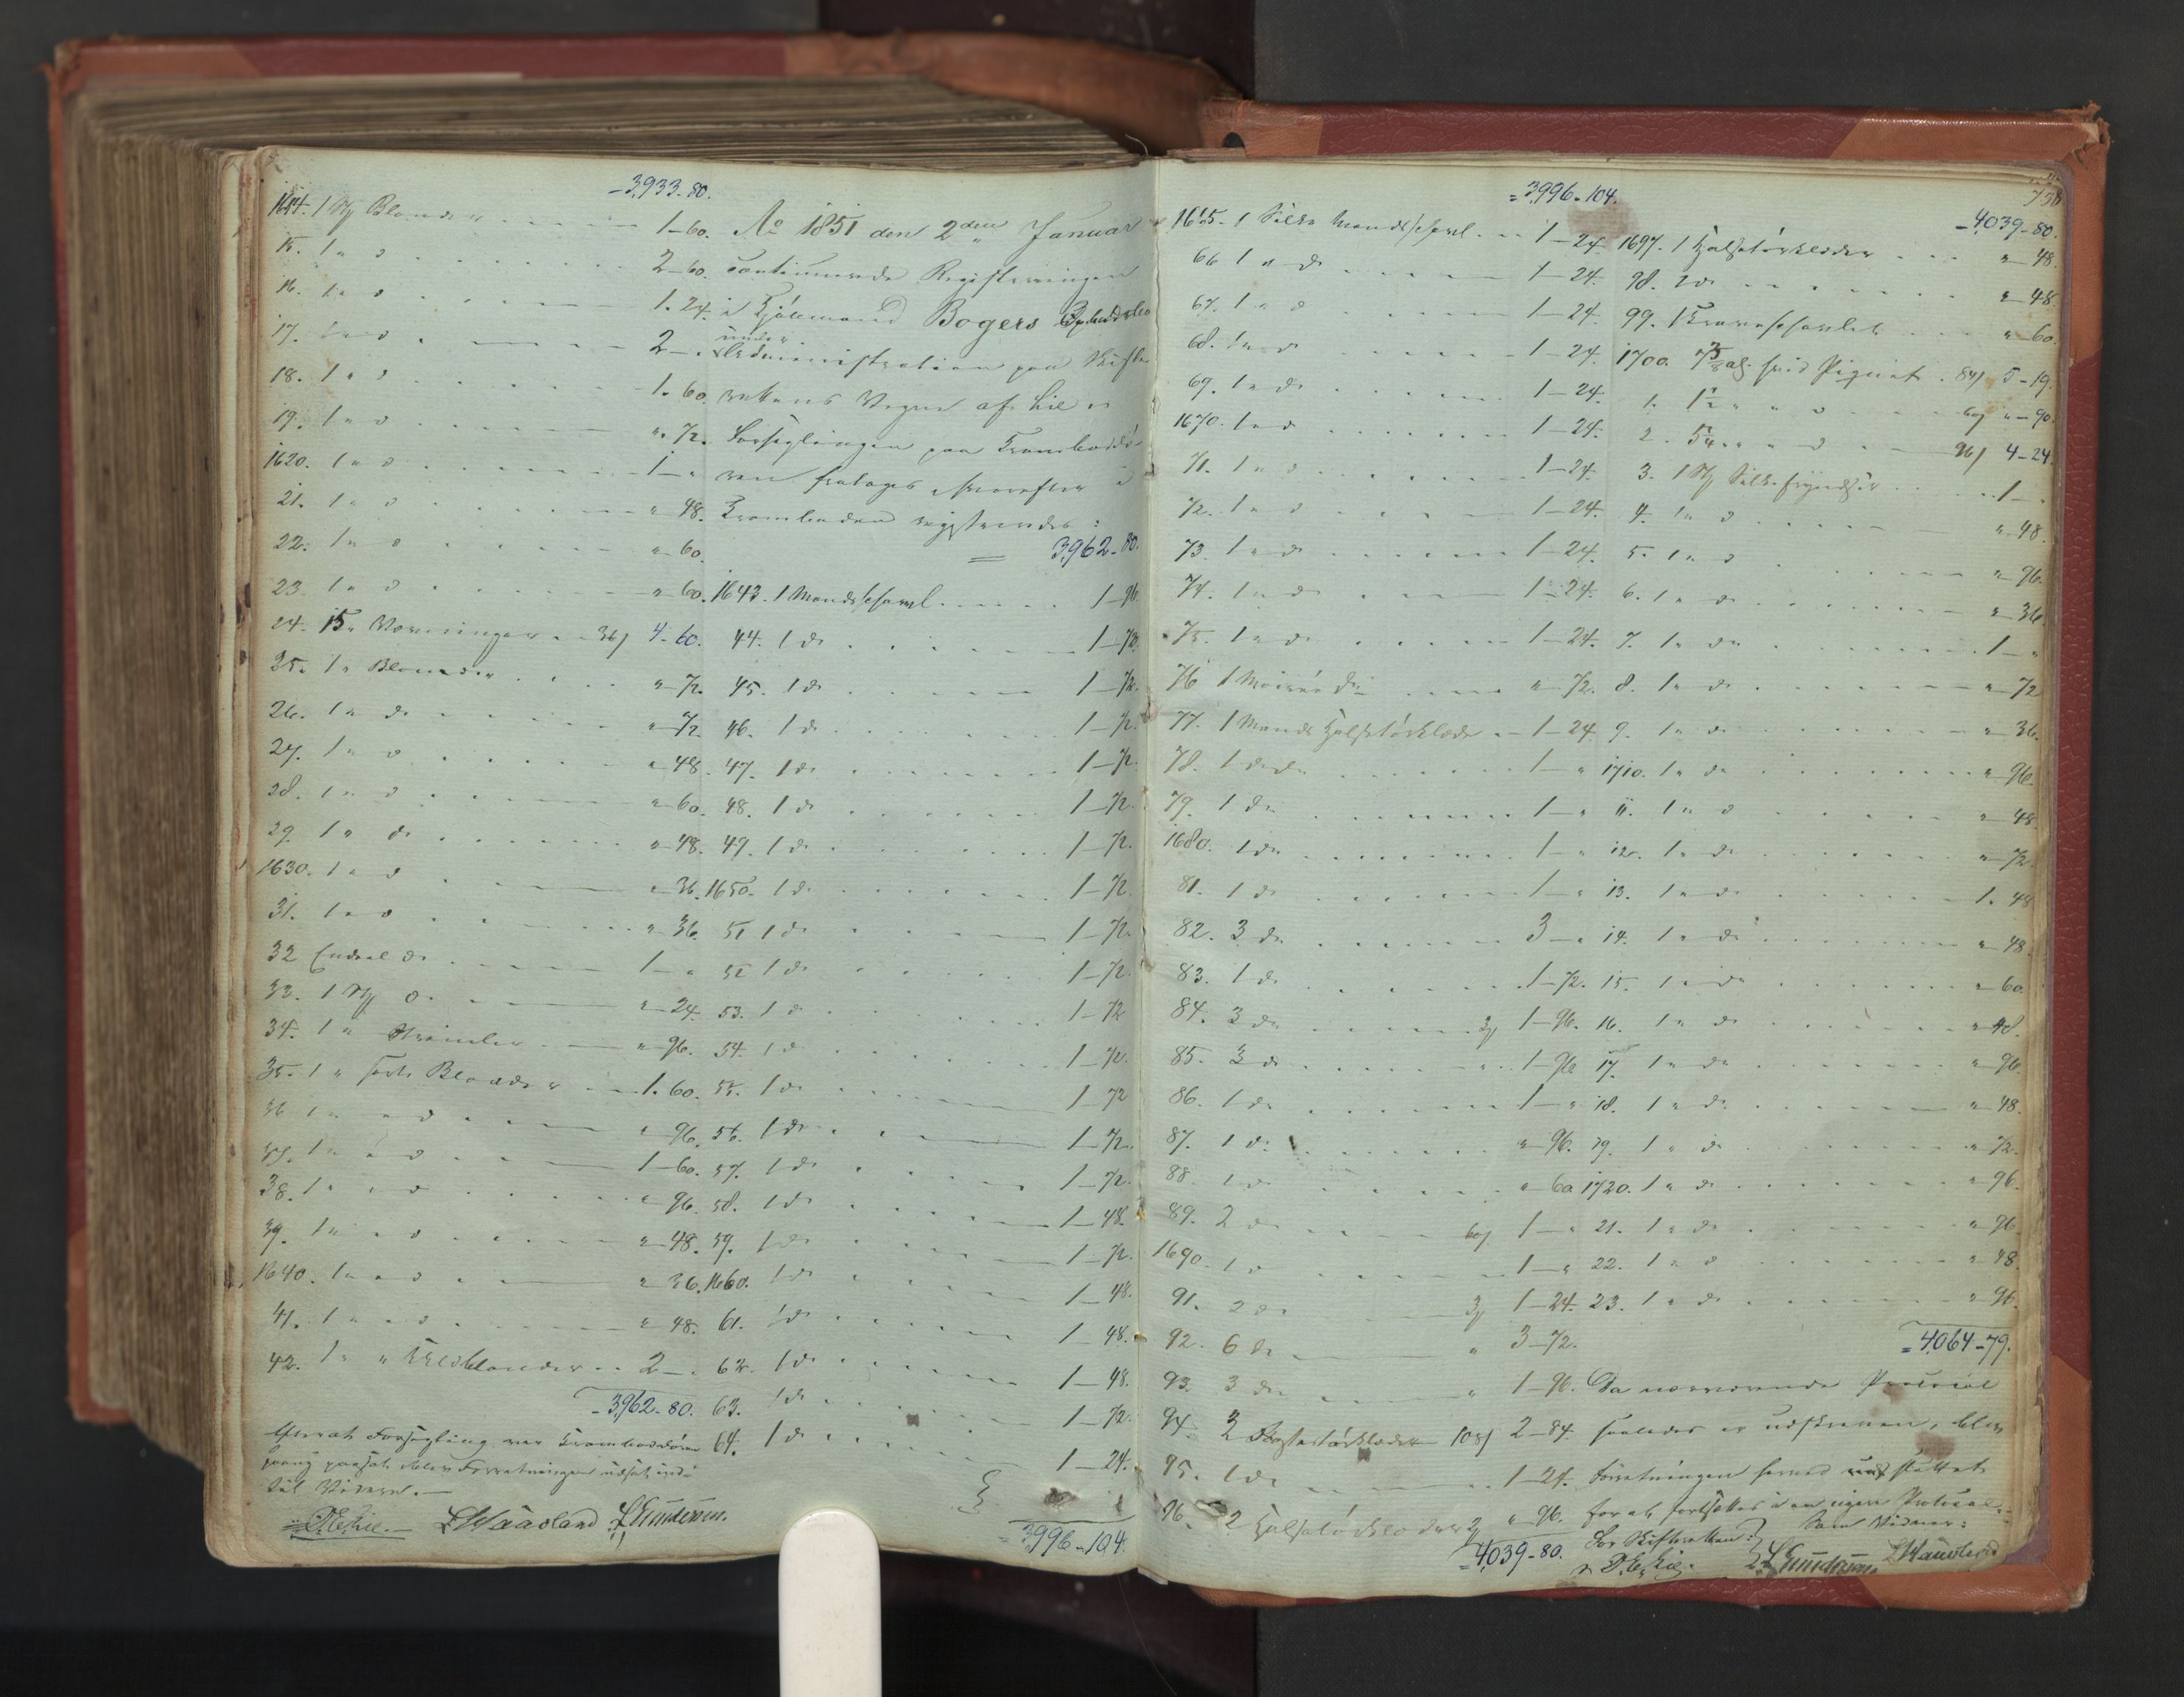 - 3933 - 80.
1614. 1 St Blonder 1-60.
15. 1 " d 2-60.
16. 1 " d 1-24.
17. 1 " d 2-"
18. 1 " d 1-60.
19. 1 " d "-72.
1620. 1 " d 1-"
21. 1 " d "-48.
22. 1 " d "-60.
23. 1 " d "-60.
24. 15 " 36/ 4-60.
25. 1 " Blonder "-72.
26. 1 " do "-72
27. 1 " d "-48.
28. 1 " d "-60.
29. 1 " do "-48.
1630. 1 " d "-36.
31. 1 " d "-36.
32 Endeel do 1-"
33. 1 St d. "-24.
34. 1 " Strimler "-96.
35. 1 " sorte Blonder 1-60.
36 1 " " d "-96.
37. 1 " " d 1-60.
38. 1 " " d "-96.
39. 1 " " d "-48.
1640. 1 " " d "-36.
41. 1 " " d "-48.
42. 1 " " 2-"
- 3962-80.
Efterat Forsegling var Kramboddøren
paany paasat blev Forretningen udsat ind-
til Videre.
LWaasland LGundersen.
Ao 1851 den 2den Januar
continuerede Registreringen
i Kjøbmand Bogers Opbudsbo
under
Administration paa Skifte-
rettens Vegne af Lie
Forseglingen paa Kramboddø-
ren fratoges, hvorefter i
Kramboden registreredes:
= 3962-80.
1643. 1 Mandsschavl 1-96.
44. 1 do 1-72.
45. 1 do 1-72.
46. 1 do 1-72.
47. 1 do 1-72.
48. 1 do 1-72.
49. 1 do 1-72.
1650. 1 do 1-72.
51 1 do 1-72.
52 1 do 1-72.
53. 1 do 1-72
54. 1 do 1-72.
55. 1 do 1-72
56. 1 do 1-72.
57. 1 do 1-72.
58. 1 do 1-48.
59. 1 do 1-72.
1660. 1 do 1-48.
61. 1 do 1-48.
62. 1 do 1-48.
63. 1 do 1-72.
64. 1 do 1-24.
= 3996-104.
= 3996-104.
1665. 1 Silke Mandsschavl 1-24.
66 1 " do 1-24.
67. 1 " d 1-24.
68. 1 " do 1-24.
69. 1 " do 1-24.
1670. 1 " d 1-24.
71. 1 " d 1-24.
72. 1 " d 1-24.
73. 1 " do 1-24.
74. 1 " do 1-24.
75. 1 " do 1-24.
76 1 Moirée do "-72.
77. 1 Mands Halstørklæde 1-24.
78. 1 do do 1-"
79. 1 do 1-"
1680. 1 do 1-"
81. 1 do 1-"
82. 3 do 3-"
83. 1 do 1-72.
84. 3 do 1-96.
85. 3 do 1-96
86. 1 do 1-"
87. 1 do "-96.
88. 1 do "-60
89. 2 do 60/ 1-"
1690. 1 d 1-"
91. 2 do 1-24.
92. 6 do " 3-72.
93. 3 do " 1-96.
94. 3 108/ 2-84.
95. 1 do 1-24.
96. 2 Halstørklæder "-96.
= 4039-80.
758
- 4039-80.
1697. 1 Halstørklæder "-48.
98. 1 do "-48.
99. 1 "-60.
1700. hvid Piquet 84/ 5-19.
1. 1½ " " d 60/ "-90.
2. 5¼ " " d 96/ 4-24.
3. 1 St Silkefryndser 1-"
4. 1 " d "-48.
5. 1 " d "-96.
6. 1 " do "-36.
7. 1 " do 1-"
8. 1 " do "-72
9. 1 " do "-36.
1710. 1 " do "-96.
11. 1 " d "-48.
12. 1 " do "-72.
13. 1 " do 1-48
14. 1 " do "-48.
15. 1 " do "-60
16. 1 " do "-48.
17. 1 " do "-96.
18. 1 " do "-48.
19. 1 " do "-72.
1720. 1 " do "-96.
21. 1 " do "-96.
22. 1 " d "-48
23. 1 " do "-96.
= 4064-79.
Da nærværende Protocol
saaledes er udskreven, blev
Forretningen herved sluttet
for at fortsættes i en nyere Protocol.
For Skifteretten: Som Vidner:
LGundersen. LWaasland